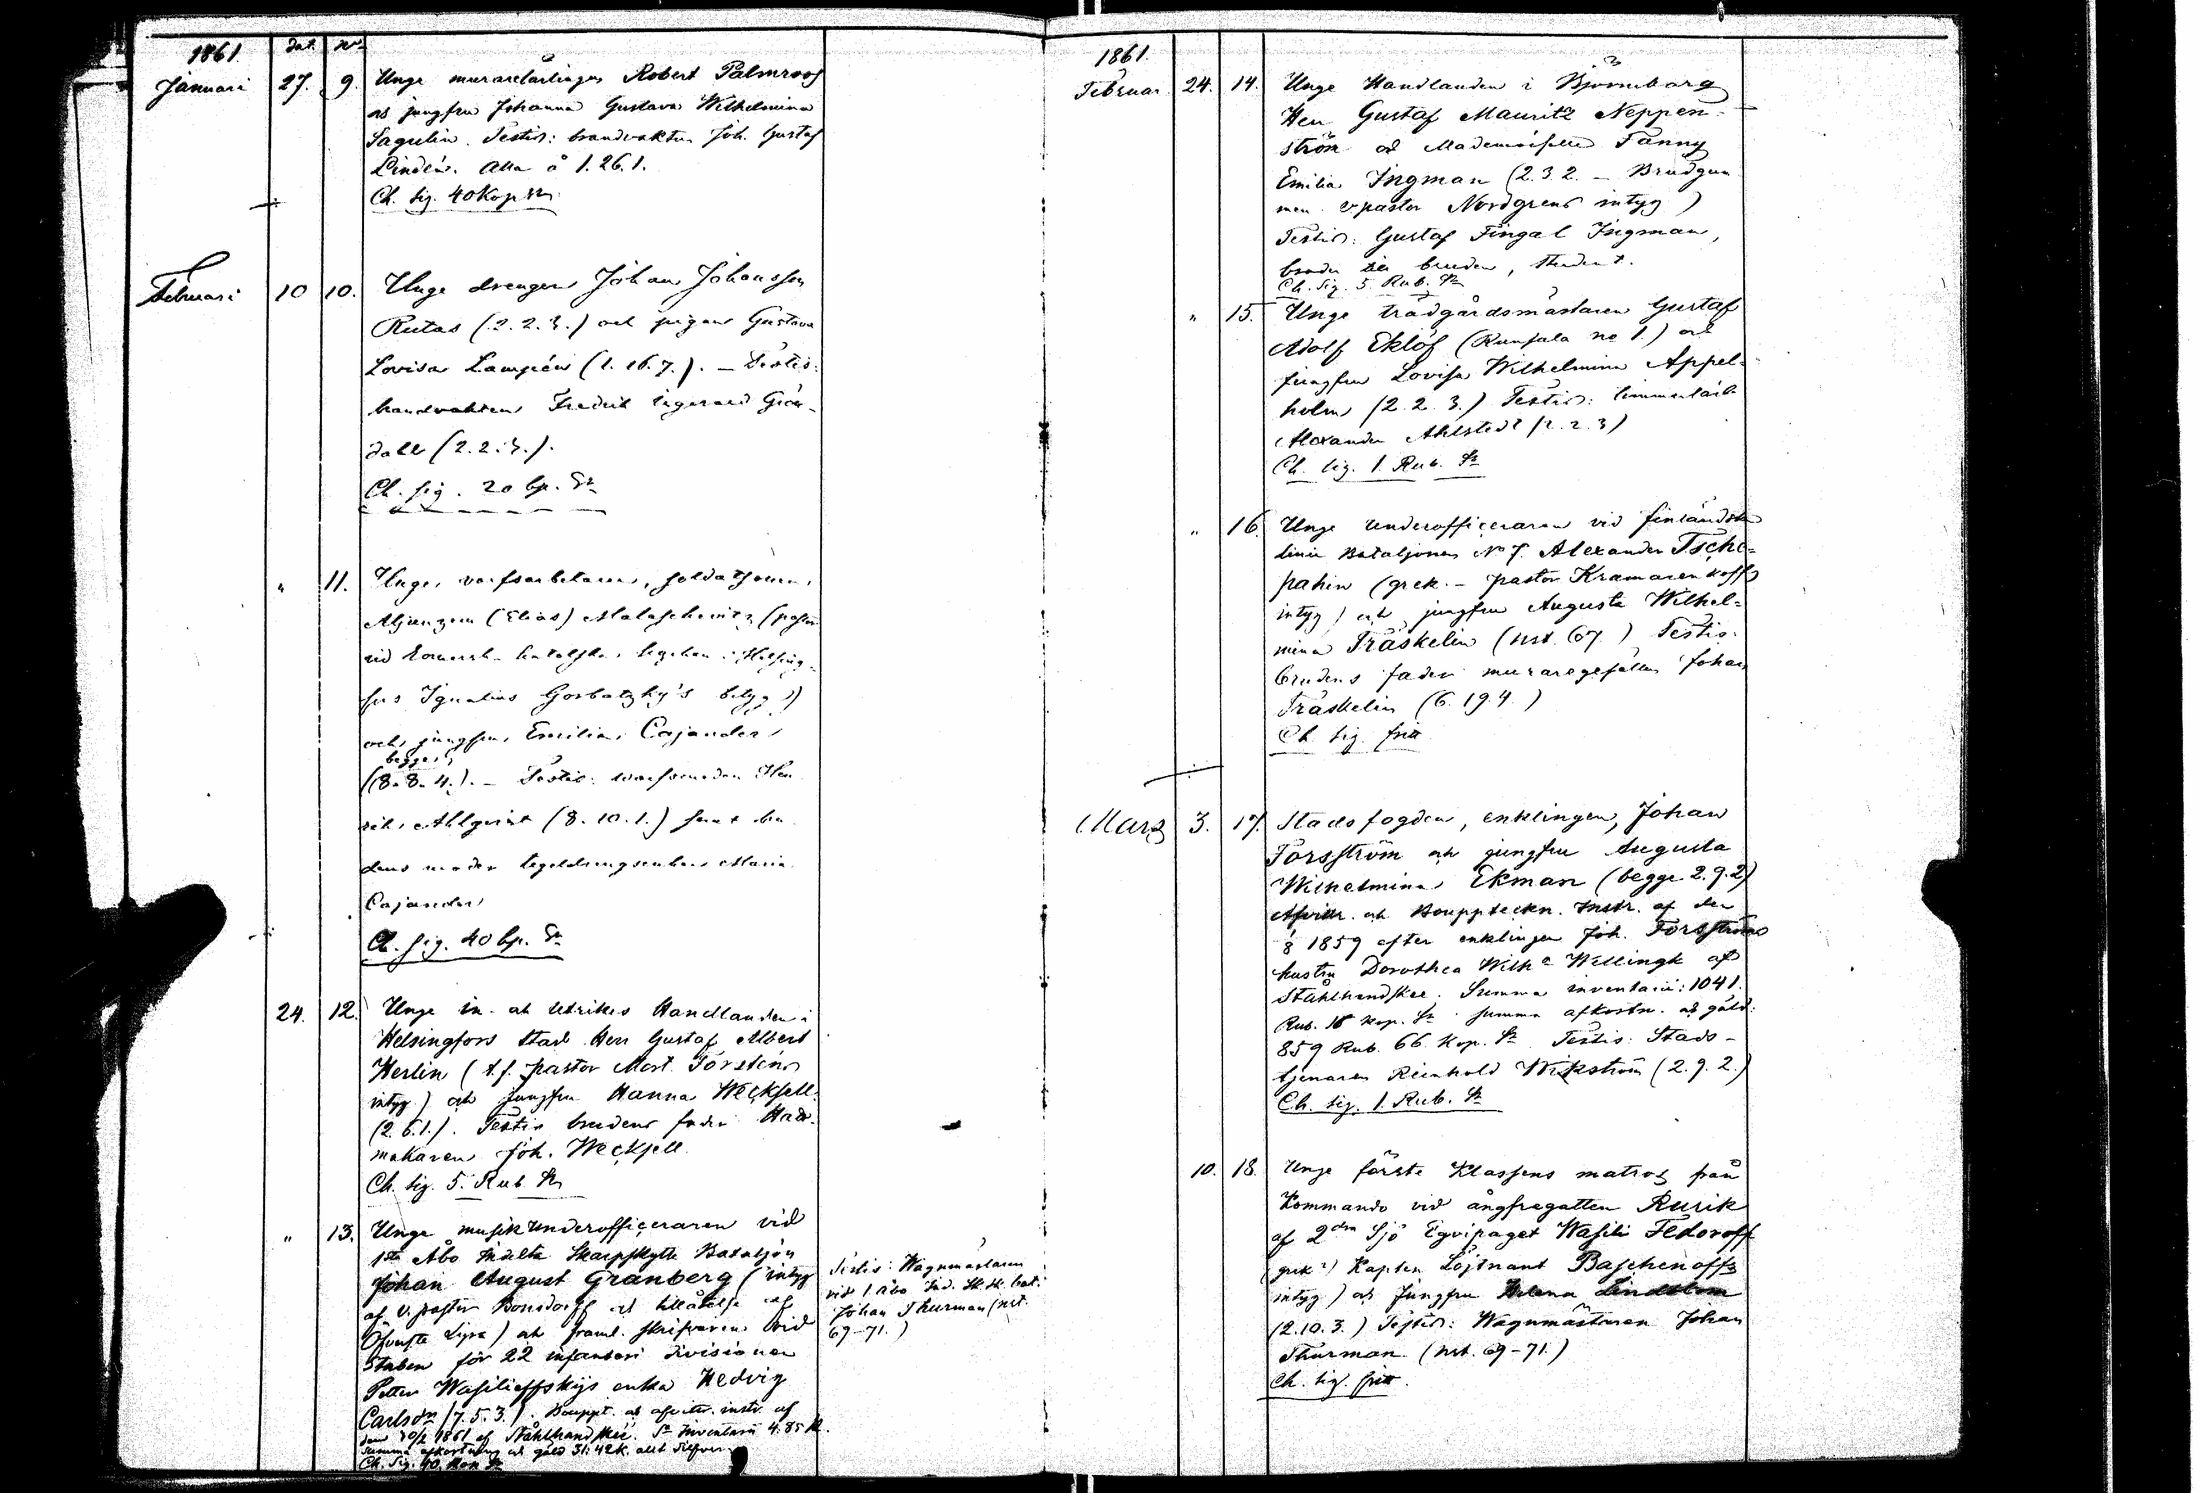 1861. dat. No
Januari 27. 9. Unge murarelärlingen Robert Palmroos
och jungfru Johanna Gustava Wilhelmina
Sagulin. Testis: brandvakten Joh. Gustaf
Lindén. Alla å 1.26.1.
Ch. sig. 40 Kop. Sr
Februari 10 10. Unge drengen Johan Johansson
Rutas (2.2.3.) och pigan Gustava
Lovisa Lampén (1.16.7.). — Testis:
brandvakten Fredrik
dall (2.2.3.).
Ch. sig. 20 kp. Sr
" 11. Unge varfsarbetaren, soldatsonen,
(Elias) Malaschewitz (pastor
vid Helsing-
fors Ignatius Gorbatzky's betyg)
och jungfru Emilia Cajander
begge
(8.8.4.). — Testis:
rik Ahlqvist (8.10.1.) samt bru
dens moder Maria
Cajander
Ch. sig. 40 kp. Sr
24. 12. Unge in- och utrikes Handlanden i
Helsingfors stad Herr Gustaf Albert
Herlin (t.f. pastor Mort. Torsténs
intyg) och jungfru Hanna Weckjell
(2.6.1.). Testis brudens fader Hatt-
makaren Joh. Weckjell.
Ch. sig. 5. Rub. Sr
" 13. Unge musikunderofficeraren vid
1sta Åbo Indelta Skarpskytte Bataljon
Johan August Granberg (intyg
af v. pastor Bonsdorff och tillåtelse af
Öfverste Lyra) och framl. skrifvaren vid
Staben för 22 infanteri Divisionen
Petter Wasilieffskijs enka Hedvig
Carlsdr (7.5.3.). Bouppt. och afvittr. instr. af
den 30/1 1861 af Stålhandske. Sa Inventarii 4.85 K.
Summa afkortning och gäld 31:42 K. allt Silfver.
Ch. Sig. 40. Kop. Sr
Testis: Wagnmästaren
vid 1 Åbo Ind. Sk. sk. bat.
Johan Thurman (nst.
69-71.)
1861.
Februar 24. 14. Unge Handlanden i Björneborg
Herr Gustaf Mauritz Neppen-
ström och Mademoiselle Fanny
Emilia Ingman (2.3.2. — Brudgum
men v pastor Nordgrens intyg)
Testis: Gustaf Fingal Ingman,
broder till bruden, student.
Ch. Sig. 5. Rub. Sr
" 15. Unge trädgårdsmästaren Gustaf
Adolf Eklöf (Runsala no 1.) och
jungfru Lovisa Wilhelmina Appel-
holm (2.2.3.) Testis: timmerkarln
Alexander Ahlstedt (2.2.3)
Ch. sig. 1. Rub. Sr
" 16. Unge underofficeraren vid finländska
linie Bataljonen No 7. Alexander Tsche-
pahin (grek. — pastor Kramarenkoffs
intyg) och jungfru Augusta Wilhel-
mina Träskelin (nst. 67.) Testis:
brudens fader muraregesällen Johan
Träskelin (6.19.4.)
Ch. sig. fritt
Mars 3. 17. Stadsfogden, enklingen, Johan
Forsström och jungfru Augusta
Wilhelmina Ekman (begge 2.9.2)
Afvittr. och Bouppteckn. Instr. af den
1859 efter enklingen Joh. Forsströms
hustru Dorothea Wilh:a Wellingk af
Stålhandske. Summa inventarii: 1041.
Rub. 18 kop. Sr summa afkortn. och gäld:
859 Rub. 66. Kop. Sr Testis: Stads-
tjenaren Reinhold Wikström (2.9.2.)
Ch. sig. 1. Rub. Sr
10. 18. Unge förste Klassens matros från
Kommando vid ångfregatten Rurik
af 2dra Sjö Eqvipaget Wasili Fedoroff
(grek.) Kapten Löjtnant Baschenoffs
intyg) och Jungfru Helena Lindblom
(2.10.3.) Testis: Wagnmästaren Johan
Thurman. (nst. 69-71.)
Ch. sig. fritt.